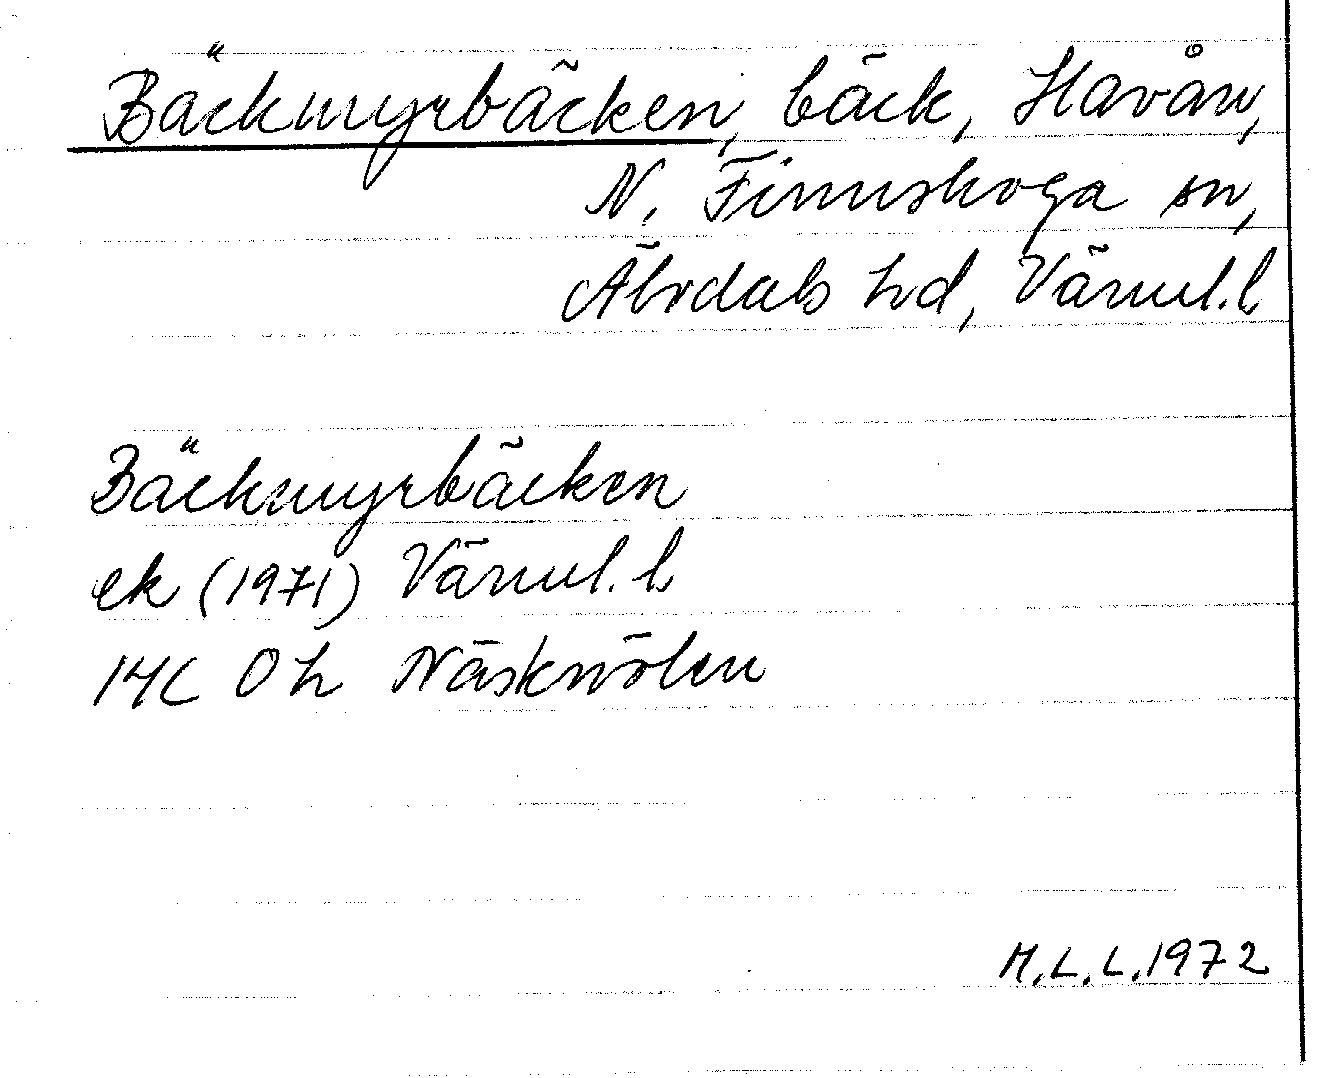 Bäckmyrbäcken, bäck, Havån,
N. Finnskoga sn,
Älvdals hd, Värml. l
Bäckmyrbäcken
ek (1971) Värml. l
14C 0h Näsknölen
M.L.L. 1972